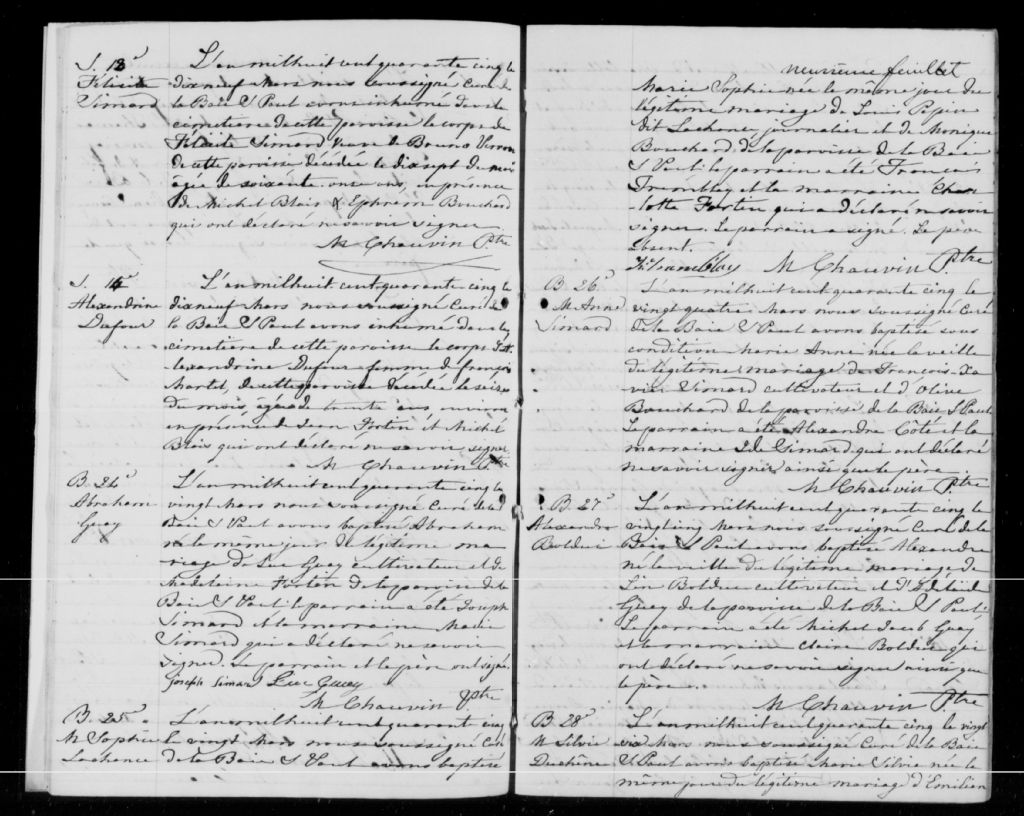 S. 13e
Félicité
Simard
L'an milhuit cent quarante cinq le
dixneuf Mars nous soussigné Curé de
la Baie St Paul avons inhumé dans le
cimetiere de cette paroisse le corps de
Félicité Simard veuve de Bruno
de cette paroisse décédée le dixsept du mois
agée de soixante onze ans, en présence
de Michel Blais & Ephrem Bouchard
qui ont déclaré ne savoir signer
M Chauvin Ptre
S. 14e
Alexandrine
Dufour
L'an milhuit cent quarante cinq le
dixneuf Mars nous soussigné Curé de
la Baie St Paul avons inhumé dans le
cimetiere de cette paroisse le corps d'A-
lexandrine Dufour femme de françois
Martel, de cette paroisse décédée le seize
du mois, agée de trente ans, environ
en présence de Jean Fortin et Michel
Blais qui ont déclaré ne savoir signer
M Chauvin Ptre
B. 24e
Abraham
Guay
L'an milhuit cent quarante cinq le
vingt Mars nous soussigné Curé de la
Baie St Paul avons baptisé Abraham
né le même jour de légitime ma
riage de Luc Guay cultivateur et de
Madeleine Fortin de la paroisse de la
Baie St Paul le parrain a été Joseph
Simard et la marraine Marie
Simard qui a déclaré ne savoir
signer. Le parrain et le père ont signé.
Joseph Simard Luc Guay
M Chauvin Ptre
B. 25e
M Sophie
Lachance
L'an milhuit cent quarante cinq
le vingt Mars nous soussigné Curé
de la Baie St Paul avons baptisé
neuvieme feuillet
Marie Sophie née le même jour du
légitime mariage de Louis Pepin
dit Lachance journalier et de Monique
Bouchard de la paroisse de la Baie
St Paul le parrain a été François
Tremblay et la marraine Char
lotte Fortin qui a déclaré ne savoir
signer. Le parrain a signé. Le père
absent.
M Chauvin Ptre
B. 26e
M Anne
Simard
L'an milhuit cent quarante cinq le
vingt quatre Mars nous soussigné Curé
de la Baie St Paul avons baptisé sous
condition Marie Anne née la veille
du légitime mariage de François Xa
vier Simard cultivateur et d'Olive
Bouchard de la paroisse de la Baie St Paul
Le parrain a été Alexandre Côté et la
marraine Simard qui ont déclaré
ne savoir signer ainsi que le père.
M Chauvin Ptre
B. 27e
Alexandre
Bolduc
L'an milhuit cent quarante cinq le
vingtcinq Mars nous soussigné Curé de la
Baie St Paul avons baptisé Alexandre
né la veille du légitime mariage de
Bolduc cultivateur et d'Adélaïde
Guay de la paroisse de la Baie St Paul.
Le parrain a été Michel Jacob Guay
et la marraine Claire Bolduc qui
ont déclaré ne savoir signer ainsi que
le père.
M Chauvin Ptre
B 28e
M Silvie
Duchêne
L'an milhuit cent quarante cinq le vingt
six Mars nous soussigné Curé de la Baie
St Paul avons baptisé Marie Silvie née le
même jour du légitime mariage d'Emilien